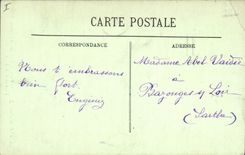 I
CARTE POSTALE
CORRESPONDANCE
ADRESSE
Nous t embrassons
bien fort.
Eugénie
Madame Abel Vaidie
à
Bazouges s/ Loir
(Sarthe)